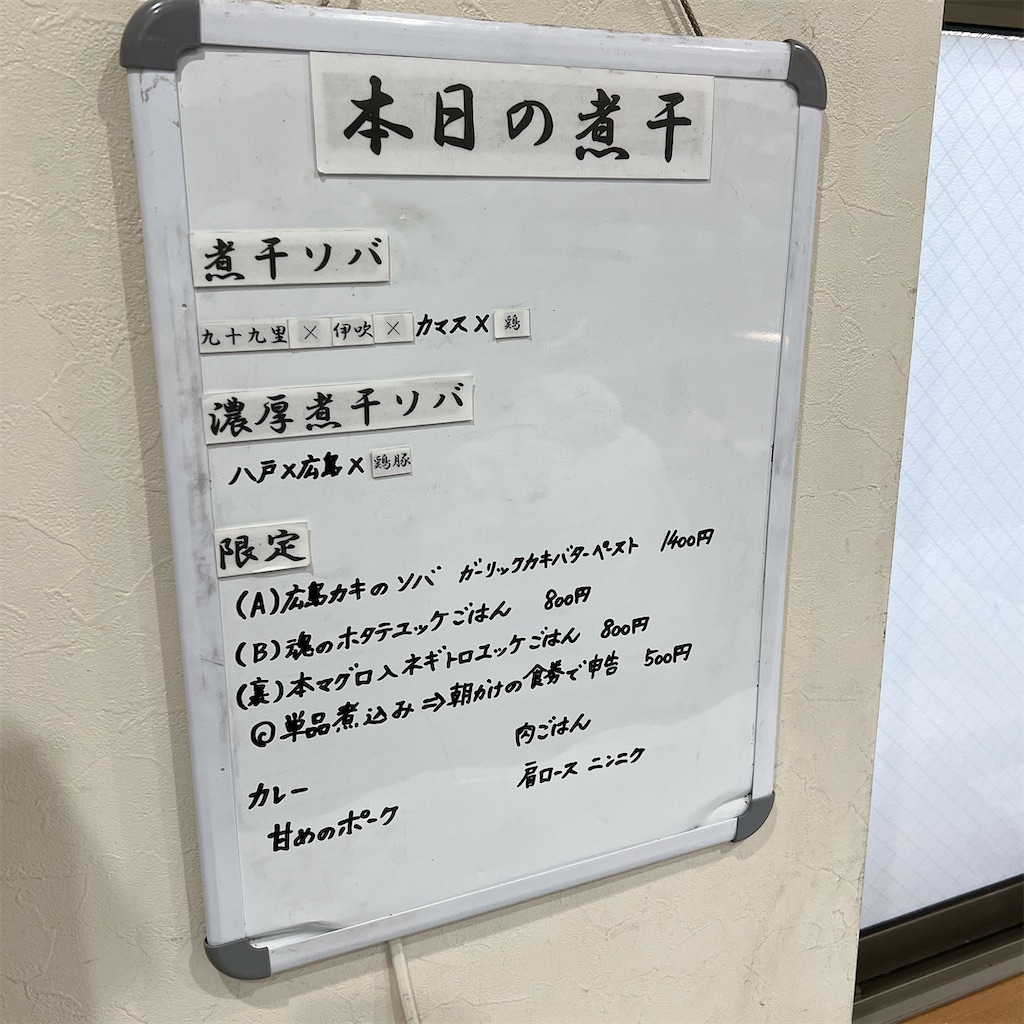 本日の煮干
煮干ソバ
九十九里×伊吹×カマス×鶏
濃厚煮干ソバ
八戸×広島×鶏豚
限定
(A)広島カキのソバ ガーリックカキバターペースト 1400円
(B)魂のホタテユッケごはん 800円
(裏)本マグロ入ネギトロユッケごはん 800円
◎単品煮込み⇒朝かけの食券で申告 500円
肉ごはん
肩ロース ニンニク
カレー
甘めのポーク